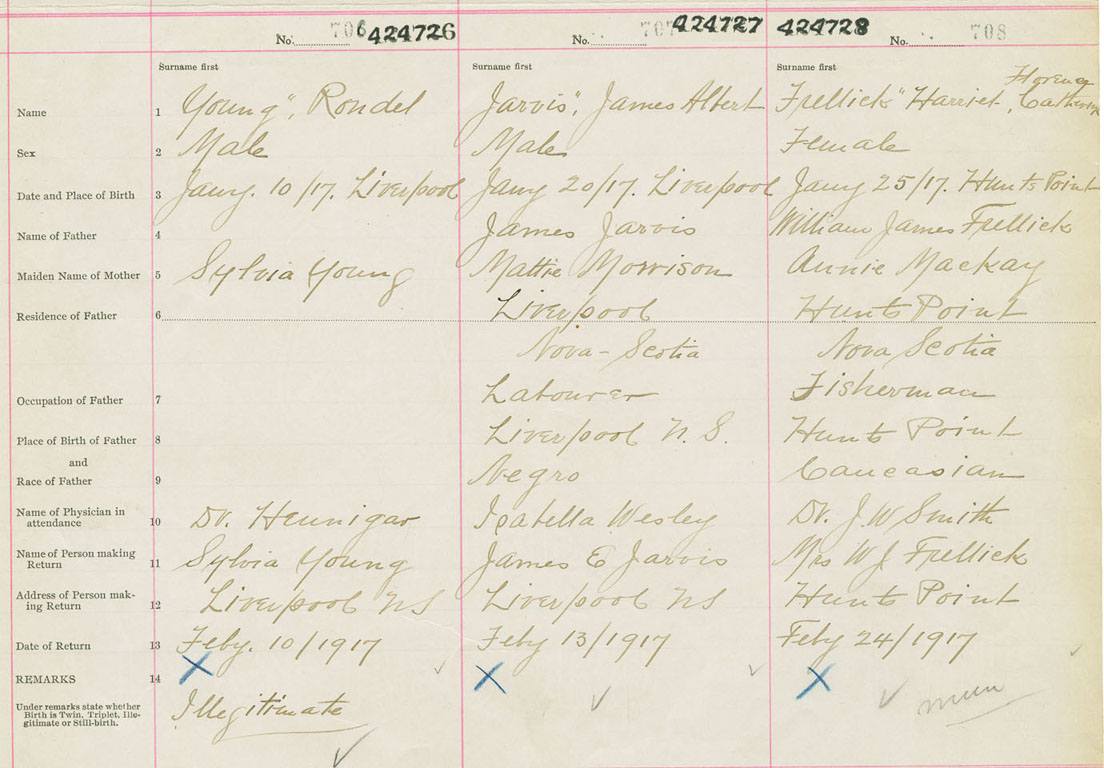 No. 706 424726 No. 707 424727 424728 No. 708
Surname first Surname first Surname first
Florence
Name 1 Young", Rondel Jarvis", James Albert Frellick" Harriet, Catherine
Sex 2 Male Male Female
Date and Place of Birth 3 Jany. 10/17. Liverpool Jany 20/17. Liverpool Jany 25/17. Hunts Point
Name of Father 4 James Jarvis William James Frellick
Maiden Name of Mother 5 Sylvia Young Mattie Morrison Annie Mackay
Residence of Father 6 Liverpool Hunts Point
Nova-Scotia Nova Scotia
Occupation of Father 7 Labourer Fisherman
Place of Birth of Father 8 Liverpool N. S. Hunts Point
and
Race of Father 9 Negro Caucasian
Name of Physician in
attendance 10 Dr. Hennigar Isabella Wesley Dr. J. W Smith
Name of Person making
Return 11 Sylvia Young James E Jarvis Mrs W J Frellick
Address of Person mak-
ing Return 12 Liverpool NS Liverpool NS Hunts Point
Date of Return 13 Feby. 10/1917 Feby 13/1917 Feby 24/1917
REMARKS 14
Under remarks state whether
Birth is Twin, Triplet, Ille-
gitimate or Still-birth.
Illegitimate